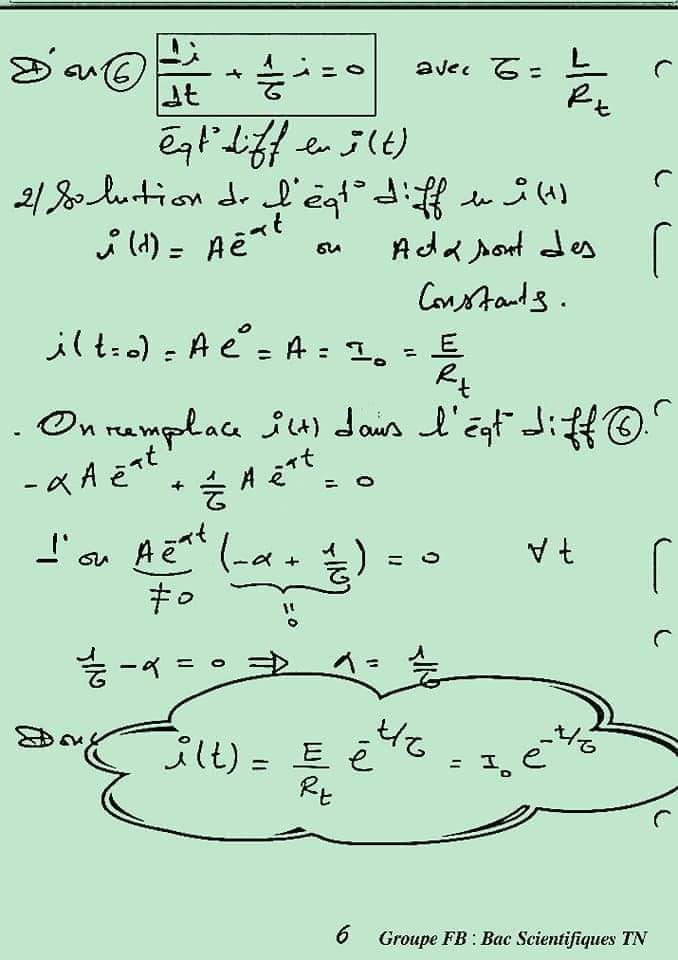 D'où ⑥ di/dt + 1/τ i = 0 avec τ = L/Rt
éqt° diff en i(t)
2/ Solution de l'éqt° diff en i(t)
i(t) = A e^-αt ou A et α sont des
Constants.
i(t=0) = A e^0 = A = I₀ = E/Rt
. On remplace i(t) dans l'éqt° diff ⑥.
-α A e^-αt + 1/τ A e^-αt = 0
D'ou A e^-αt (-α + 1/τ) = 0 ∀ t
≠0 =0
1/τ - α = 0 ⇒ α = 1/τ
Donc i(t) = E/Rt e^-t/τ = I₀ e^-t/τ
6 Groupe FB : Bac Scientifiques TN